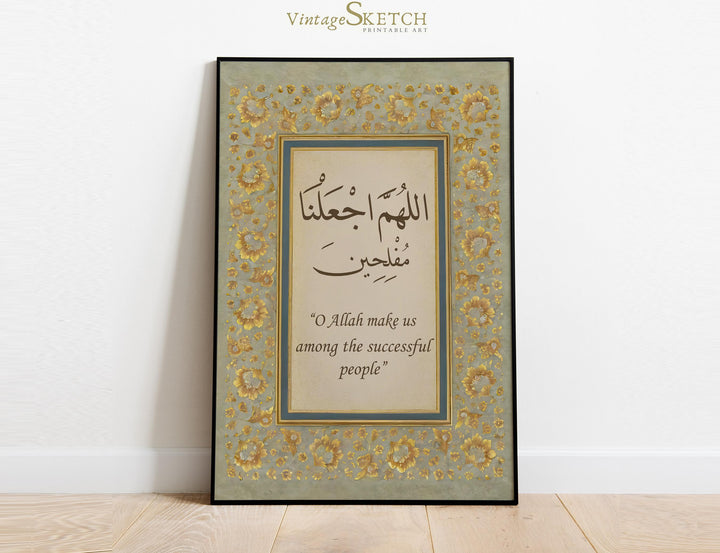 VintageSKETCH
PRINTABLE ART
اللهُمَّ اجْعَلْنَا
مُفْلِحِينَ
“O Allah make us
among the successful
people”